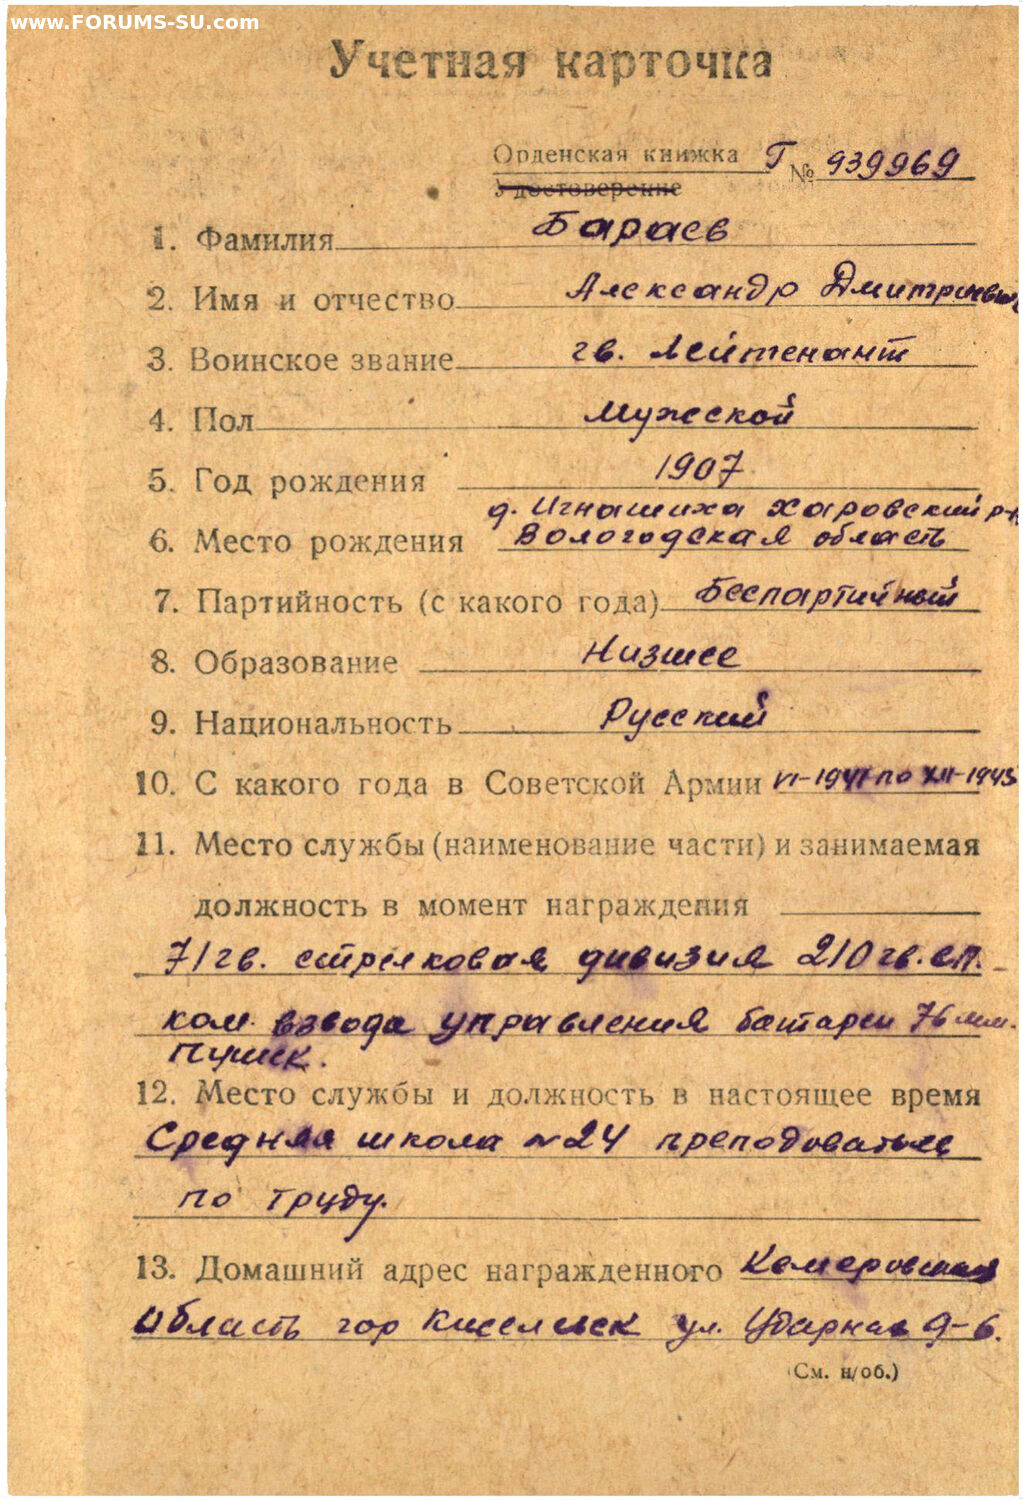 www.FORUMS-SU.com
Учетная карточка
Орденская книжка Г № 939969
Удостоверение
1. Фамилия Бараев
2. Имя и отчество Александр Дмитриевич
3. Воинское звание гв. Лейтенант
4. Пол Мужской
5. Год рождения 1907
д. Игнашиха Харовский р-н
6. Место рождения Вологодская область
7. Партийность (с какого года) Беспартийный
8. Образование Низшее
9. Национальность Русский
10. С какого года в Советской Армии VI-1941 по XII-1945
11. Место службы (наименование части) и занимаемая
должность в момент награждения
71 гв. стрелковая дивизия 210 гв. сп.
ком. взвода управления батареи 76 мм.
пушек.
12. Место службы и должность в настоящее время
Средняя школа №24 преподователь
по труду.
13. Домашний адрес награжденного Кемеровская
область гор Киселевск ул. Ударная 9-6.
(См. н/об.)